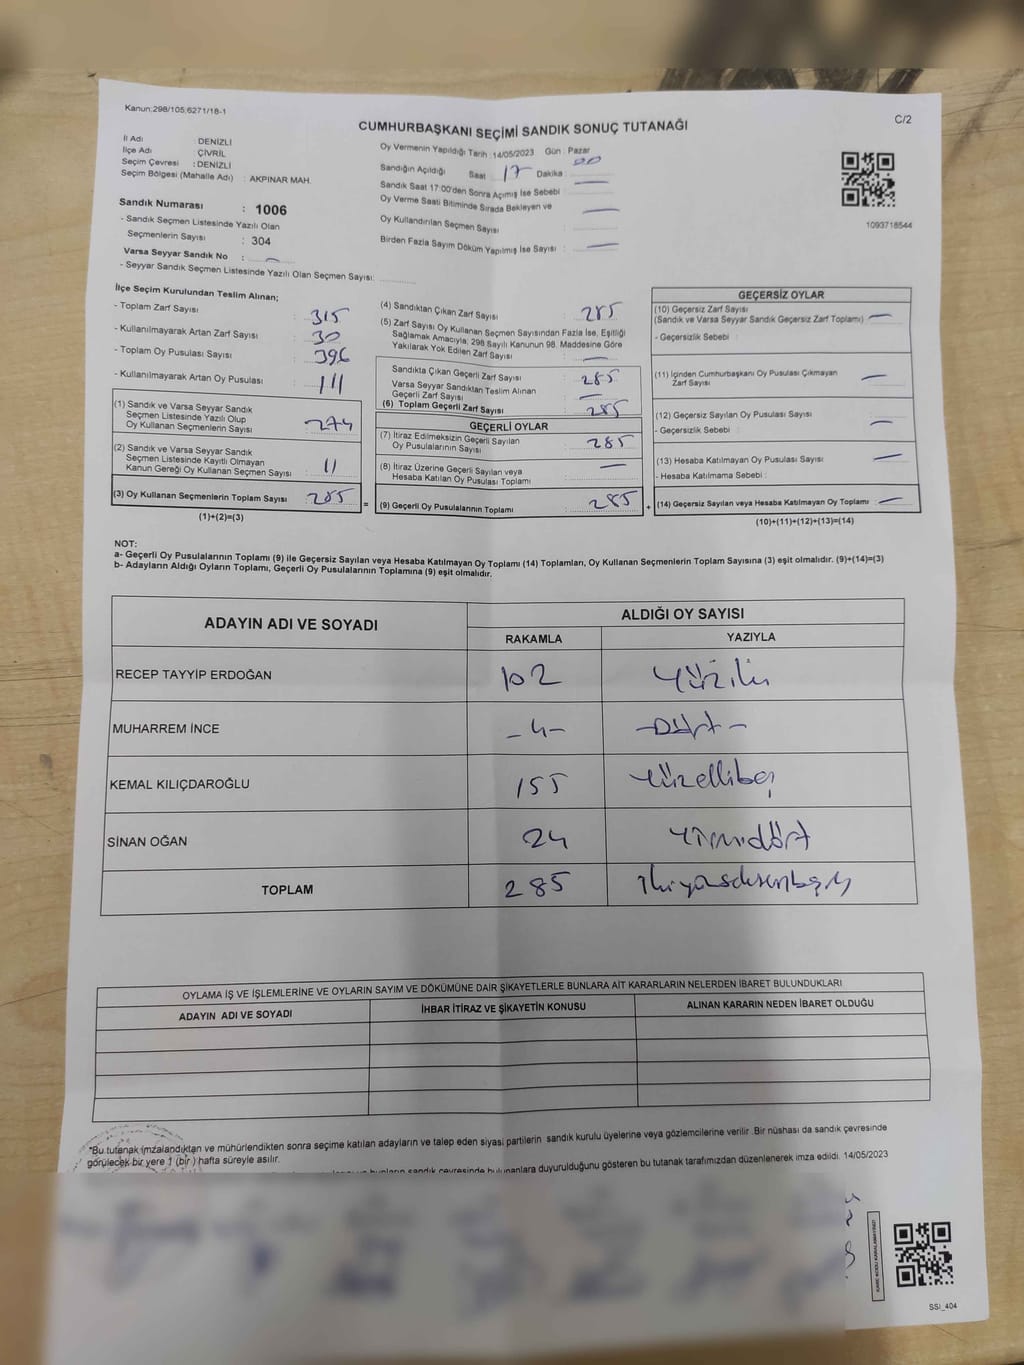 Kanun:298/105;6271/18-1
CUMHURBAŞKANI SEÇİMİ SANDIK SONUÇ TUTANAĞI
C/2
İl Adı : DENİZLİ
İlçe Adı : ÇİVRİL
Seçim Çevresi : DENİZLİ
Seçim Bölgesi (Mahalle Adı) : AKPINAR MAH.
Sandık Numarası : 1006
- Sandık Seçmen Listesinde Yazılı Olan
Seçmenlerin Sayısı : 304
Varsa Seyyar Sandık No : -
- Seyyar Sandık Seçmen Listesinde Yazılı Olan Seçmen Sayısı:
Oy Vermenin Yapıldığı Tarih : 14/05/2023 Gün : Pazar
Sandığın Açıldığı Saat 17 Dakika : 00
Sandık Saat 17:00'den Sonra Açımış İse Sebebi : -
Oy Verme Saati Bitiminde Sırada Bekleyen ve
Oy Kullandırılan Seçmen Sayısı : -
Birden Fazla Sayım Döküm Yapılmış İse Sayısı : -
1093718544
İlçe Seçim Kurulundan Teslim Alınan;
- Toplam Zarf Sayısı : 315
- Kullanılmayarak Artan Zarf Sayısı : 30
- Toplam Oy Pusulası Sayısı : 396
- Kullanılmayarak Artan Oy Pusulası : 111
(1) Sandık ve Varsa Seyyar Sandık
Seçmen Listesinde Yazılı Olup
Oy Kullanan Seçmenlerin Sayısı : 274
(2) Sandık ve Varsa Seyyar Sandık
Seçmen Listesinde Kayıtlı Olmayan
Kanun Gereği Oy Kullanan Seçmen Sayısı : 11
(3) Oy Kullanan Seçmenlerin Toplam Sayısı : 285 =
(1)+(2)=(3)
(4) Sandıktan Çıkan Zarf Sayısı : 285
(5) Zarf Sayısı Oy Kullanan Seçmen Sayısından Fazla İse, Eşitliği
Sağlamak Amacıyla; 298 Sayılı Kanunun 98. Maddesine Göre
Yakılarak Yok Edilen Zarf Sayısı : -
Sandıkta Çıkan Geçerli Zarf Sayısı : 285
Varsa Seyyar Sandıktan Teslim Alınan
Geçerli Zarf Sayısı : -
(6) Toplam Geçerli Zarf Sayısı : 285
GEÇERLİ OYLAR
(7) İtiraz Edilmeksizin Geçerli Sayılan
Oy Pusulalarının Sayısı : 285
(8) İtiraz Üzerine Geçerli Sayılan veya
Hesaba Katılan Oy Pusulası Toplamı : -
(9) Geçerli Oy Pusulalarının Toplamı : 285 +
GEÇERSİZ OYLAR
(10) Geçersiz Zarf Sayısı
(Sandık ve Varsa Seyyar Sandık Geçersiz Zarf Toplamı) -
- Geçersizlik Sebebi :
(11) İçinden Cumhurbaşkanı Oy Pusulası Çıkmayan
Zarf Sayısı : -
(12) Geçersiz Sayılan Oy Pusulası Sayısı : -
- Geçersizlik Sebebi :
(13) Hesaba Katılmayan Oy Pusulası Sayısı : -
- Hesaba Katılmama Sebebi :
(14) Geçersiz Sayılan veya Hesaba Katılmayan Oy Toplamı : -
(10)+(11)+(12)+(13)=(14)
NOT:
a- Geçerli Oy Pusulalarının Toplamı (9) ile Geçersiz Sayılan veya Hesaba Katılmayan Oy Toplamı (14) Toplamları, Oy Kullanan Seçmenlerin Toplam Sayısına (3) eşit olmalıdır. (9)+(14)=(3)
b- Adayların Aldığı Oyların Toplamı, Geçerli Oy Pusulalarının Toplamına (9) eşit olmalıdır.
ADAYIN ADI VE SOYADI
ALDIĞI OY SAYISI
RAKAMLA YAZIYLA
RECEP TAYYİP ERDOĞAN 102 Yüziki
MUHARREM İNCE -4- -Dört-
KEMAL KILIÇDAROĞLU 155 Yüzellibeş
SİNAN OĞAN 24 Yirmidört
TOPLAM 285
OYLAMA İŞ VE İŞLEMLERİNE VE OYLARIN SAYIM VE DÖKÜMÜNE DAİR ŞİKAYETLERLE BUNLARA AİT KARARLARIN NELERDEN İBARET BULUNDUKLARI
ADAYIN ADI VE SOYADI İHBAR İTİRAZ VE ŞİKAYETİN KONUSU ALINAN KARARIN NEDEN İBARET OLDUĞU
*Bu tutanak imzalandıktan ve mühürlendikten sonra seçime katılan adayların ve talep eden siyasi partilerin sandık kurulu üyelerine veya gözlemcilerine verilir .Bir nüshası da sandık çevresinde
görülecek bir yere 1 (bir) hafta süreyle asılır.
bunların sandık çevresinde bulunanlara duyurulduğunu gösteren bu tutanak tarafımızdan düzenlenerek imza edildi. 14/05/2023
SSİ_404